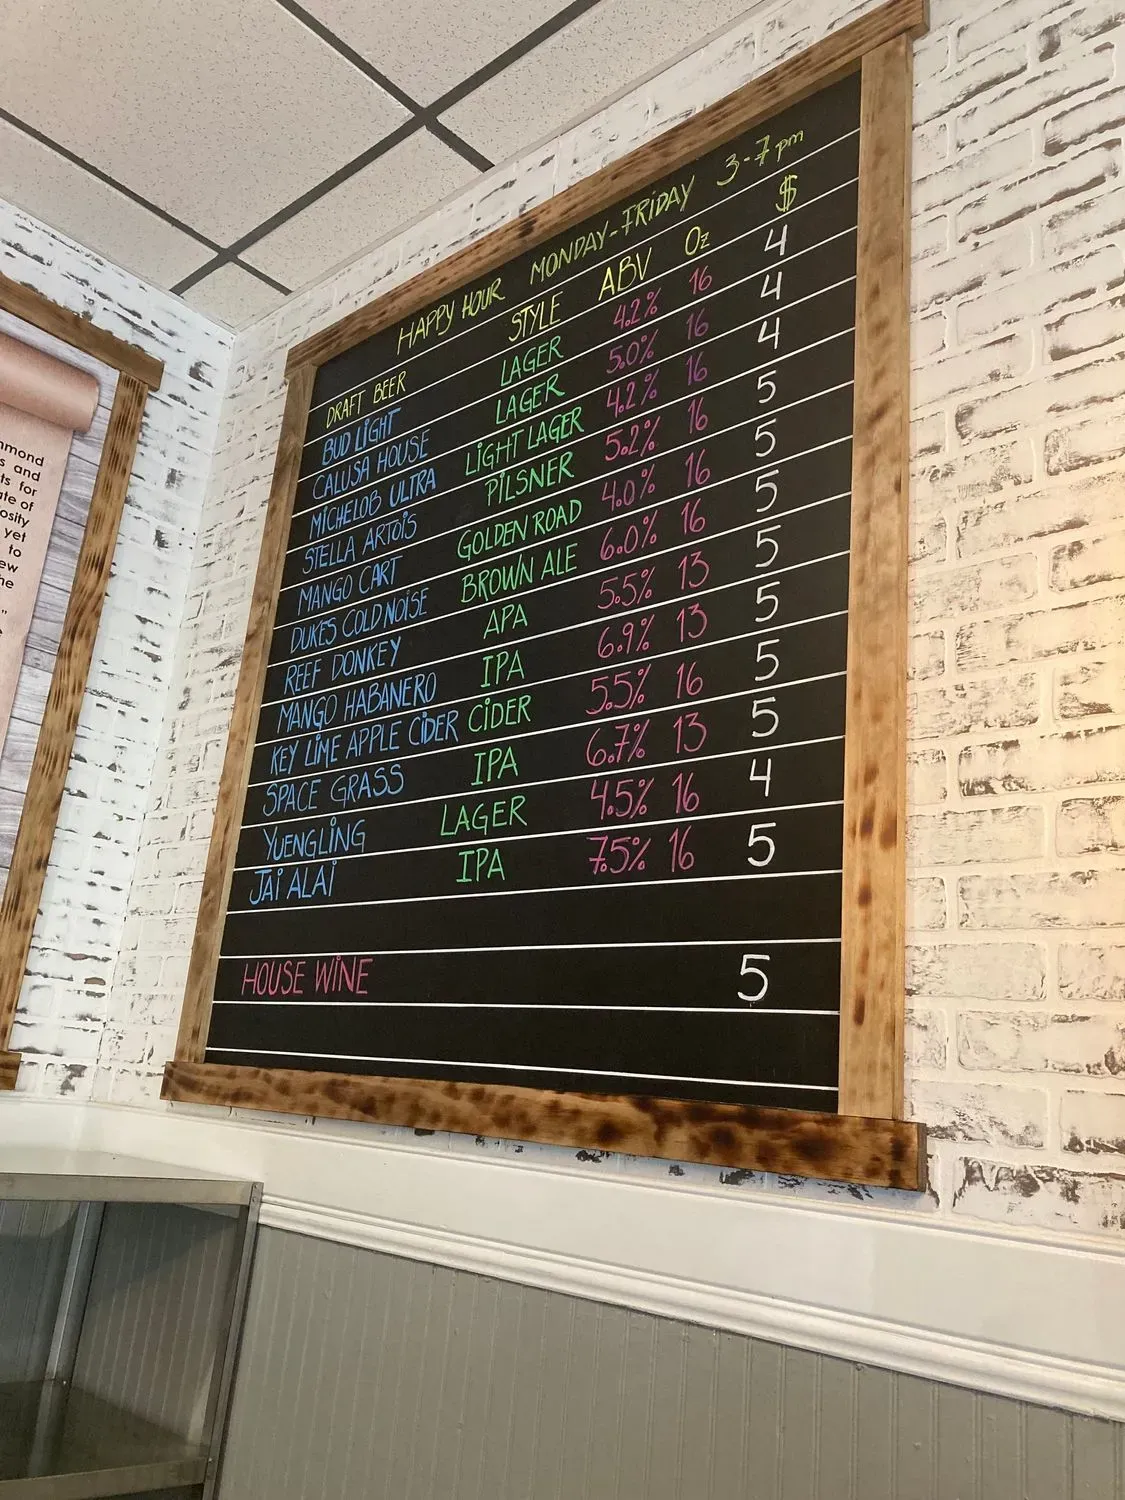 HAPPY HOUR MONDAY-FRIDAY 3-7pm
DRAFT BEER STYLE ABV Oz $
BUD LIGHT LAGER 4.2% 16 4
CALUSA HOUSE LAGER 5.0% 16 4
MICHELOB ULTRA LIGHT LAGER 4.2% 16 4
STELLA ARTOIS PILSNER 5.2% 16 5
MANGO CART GOLDEN ROAD 4.0% 16 5
DUKES COLD NOISE BROWN ALE 6.0% 16 5
REEF DONKEY APA 5.5% 13 5
MANGO HABANERO IPA 6.9% 13 5
KEY LIME APPLE CIDER CIDER 5.5% 16 5
SPACE GRASS IPA 6.7% 13 5
YUENGLING LAGER 4.5% 16 4
JAI ALAI IPA 7.5% 16 5
HOUSE WINE 5
and
for
of
yet
to